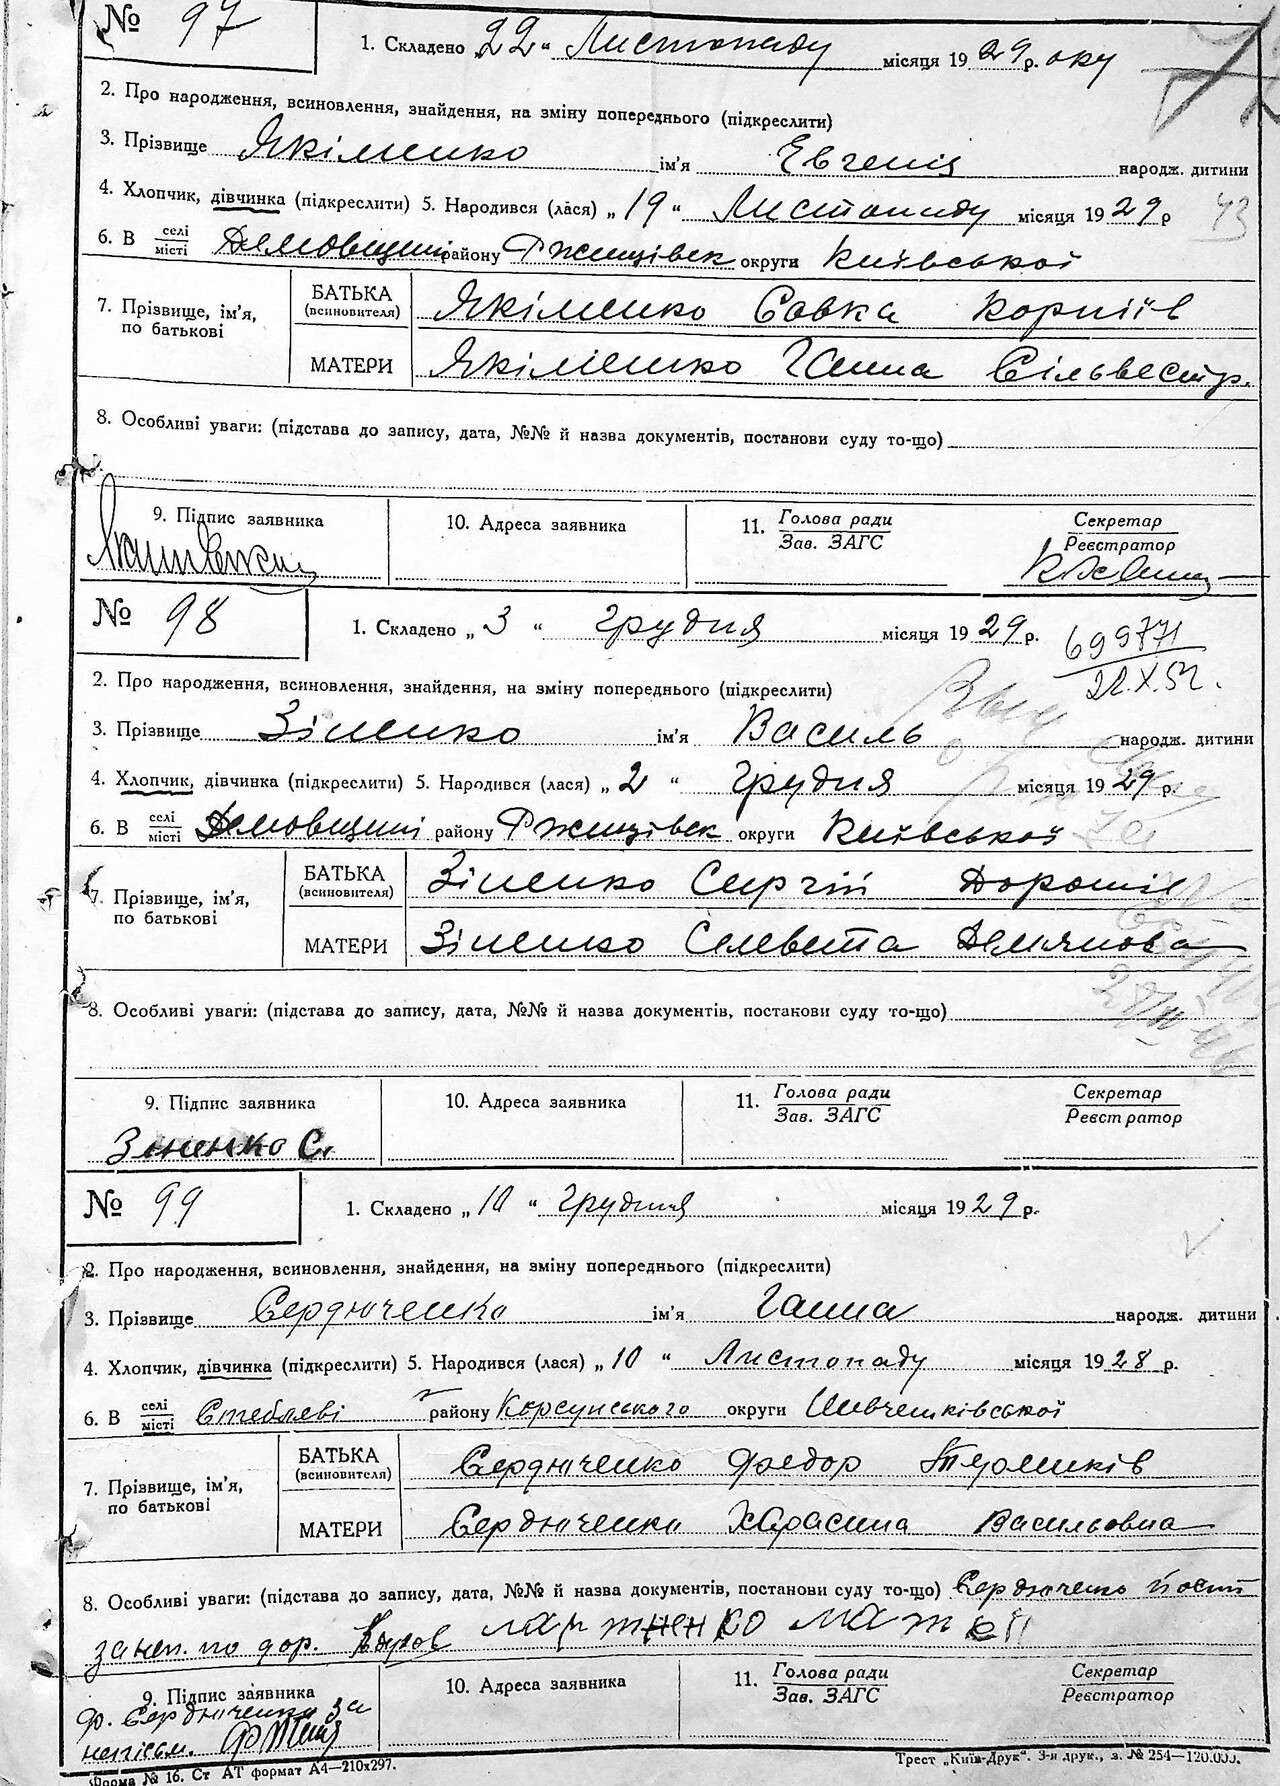 № 97
1. Складено „22“ Листопаду місяця 1929 р. оку
2. Про народження, всиновлення, знайдення, на зміну попереднього (підкреслити)
3. Прізвище Якіменко ім'я Евгенія народж. дитини
4. Хлопчик, дівчинка (підкреслити) 5. Народився (лася) „19“ Листопаду місяця 1929 р
43
6. В селі місті Демовщині району Ржищівськ округи Київської
7. Прізвище, ім'я, по батькові
БАТЬКА (всиновителя) Якіменко Савка Корніїв
МАТЕРИ Якіменко Ганна Сільвестр.
8. Особливі уваги: (підстава до запису, дата, №№ й назва документів, постанови суду то-що)
9. Підпис заявника
10. Адреса заявника
11. Голова ради Зав. ЗАГС
Секретар Реєстратор
№ 98
1. Складено „3“ Грудня місяця 1929 р.
699771
21.X.52.
2. Про народження, всиновлення, знайдення, на зміну попереднього (підкреслити)
3. Прізвище Зіненко ім'я Василь народж. дитини
4. Хлопчик, дівчинка (підкреслити) 5. Народився (лася) „2“ Грудня місяця 1929 р.
6. В селі місті Демовщині району Ржищівськ округи Київської
7. Прізвище, ім'я, по батькові
БАТЬКА (всиновителя) Зіненко Сиргій Дорошів
МАТЕРИ Зіненко Селевета Демянова
8. Особливі уваги: (підстава до запису, дата, №№ й назва документів, постакови суду то-що)
9. Підпис заявника
10. Адреса заявника
11. Голова ради Зав. ЗАГС
Секретар Реєстратор
Зіненко С.
№ 99
1. Складено „10“ Грудня місяця 1929 р.
2. Про народження, всиновлення, знайдення, на зміну попереднього (підкреслити)
3. Прізвище Сердюченко ім'я Ганна народж. дитини
4. Хлопчик, дівчинка (підкреслити) 5. Народився (лася) „10“ Листопаду місяця 1928 р.
6. В селі місті Стеблеві району Корсунського округи Шевченківської
7. Прізвище, ім'я, по батькові
БАТЬКА (всиновителя) Сердюченко Федор
МАТЕРИ Сердюченко Харасина Васильовна
8. Особливі уваги: (підстава до запису, дата, №№ й назва документів, постанови суду то-що) Сердюченко
за неп. по дор.
9. Підпис заявника
10. Адреса заявника
11. Голова ради Зав. ЗАГС
Секретар Реєстратор
Ф. Сердюченко за
неписьм.
Форма № 16. Ст АТ формат А4—210x297.
Трест „Київ-Друк“. 3-я друк., з. № 254—120.000.